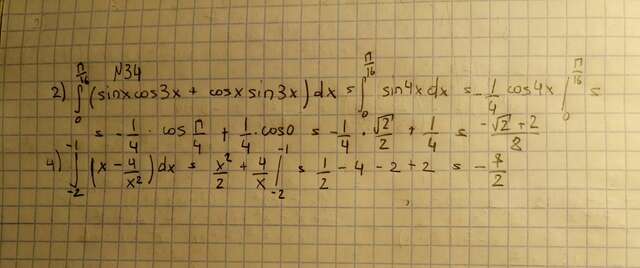 №34
2) ∫₀^{π/16} (sinx cos3x + cosx sin3x) dx = ∫₀^{π/16} sin4x dx = -1/4 cos4x |₀^{π/16} =
= -1/4 · cos π/4 + 1/4 · cos0 = -1/4 · √2/2 + 1/4 = (-√2 + 2)/8
4) ∫₋₂^{-1} (x - 4/x²) dx = x²/2 + 4/x |₋₂^{-1} = 1/2 - 4 - 2 + 2 = -7/2